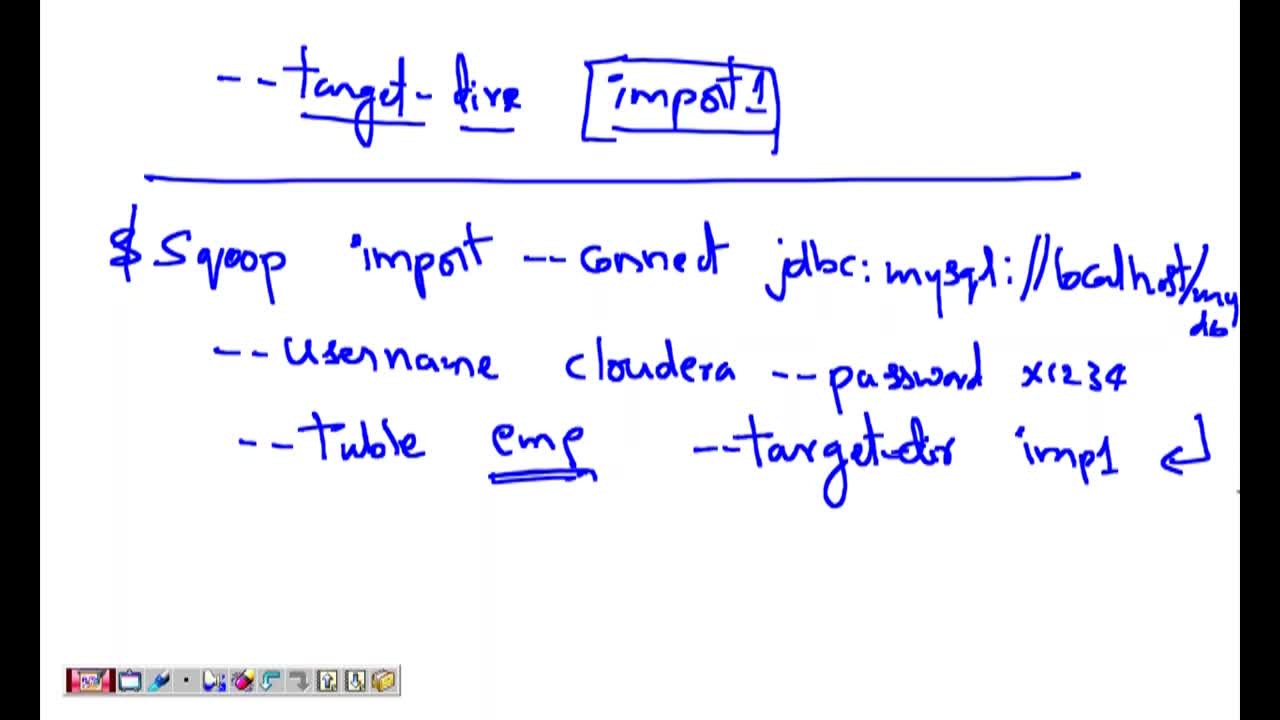 --target-dire import1
$ Sqoop import --connect jdbc:mysql://localhost/my
db
--username cloudera --password x1234
--table emp --target-dir imp1